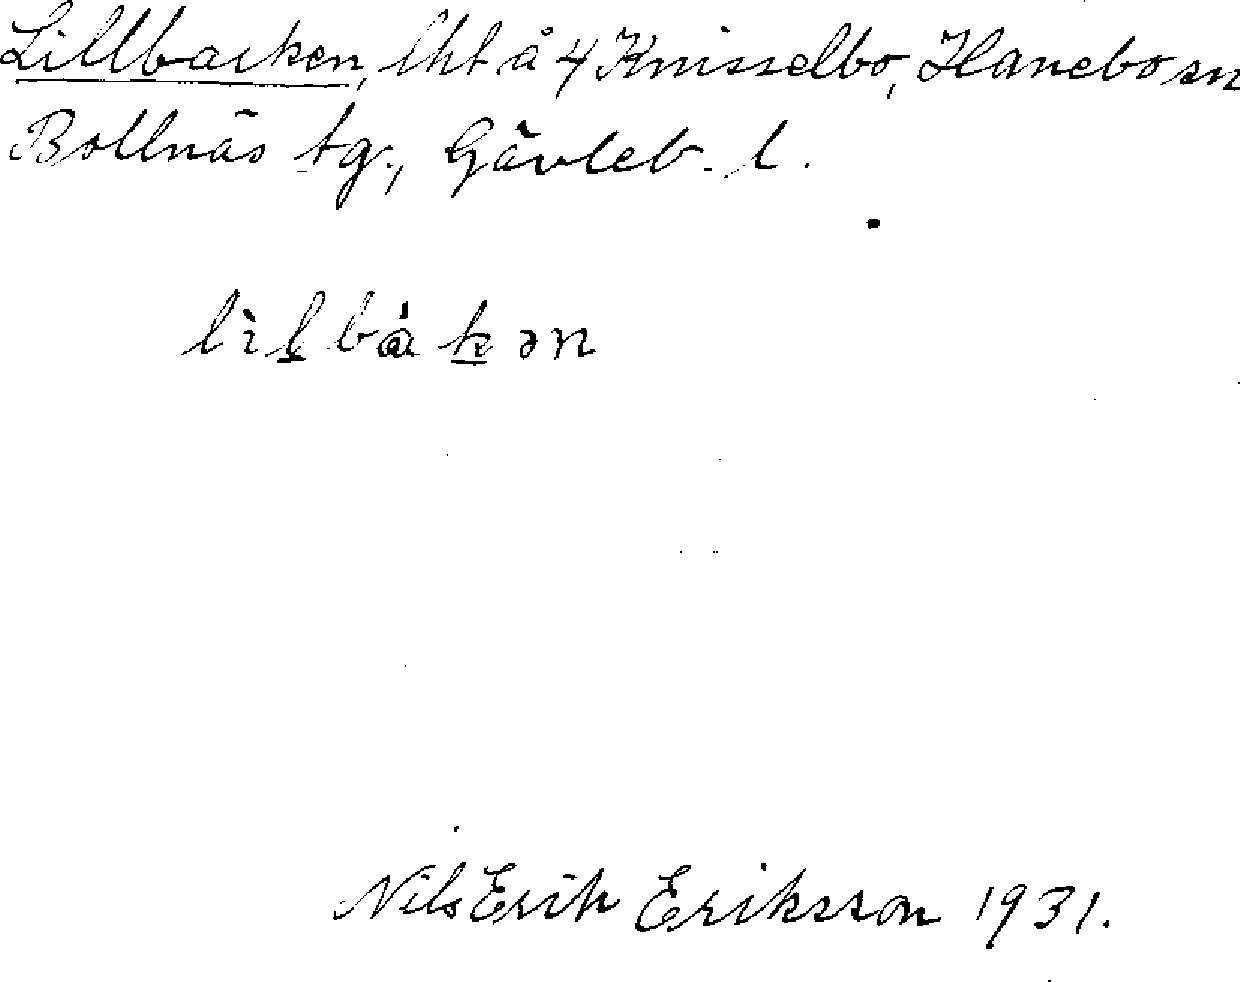 Lillbacken, lht å 4 Knisselbo, Hanebo sn
Bollnäs tg., Gävleb. l.
lìl̲bàk̲ən
Nils Erik Eriksson 1931.